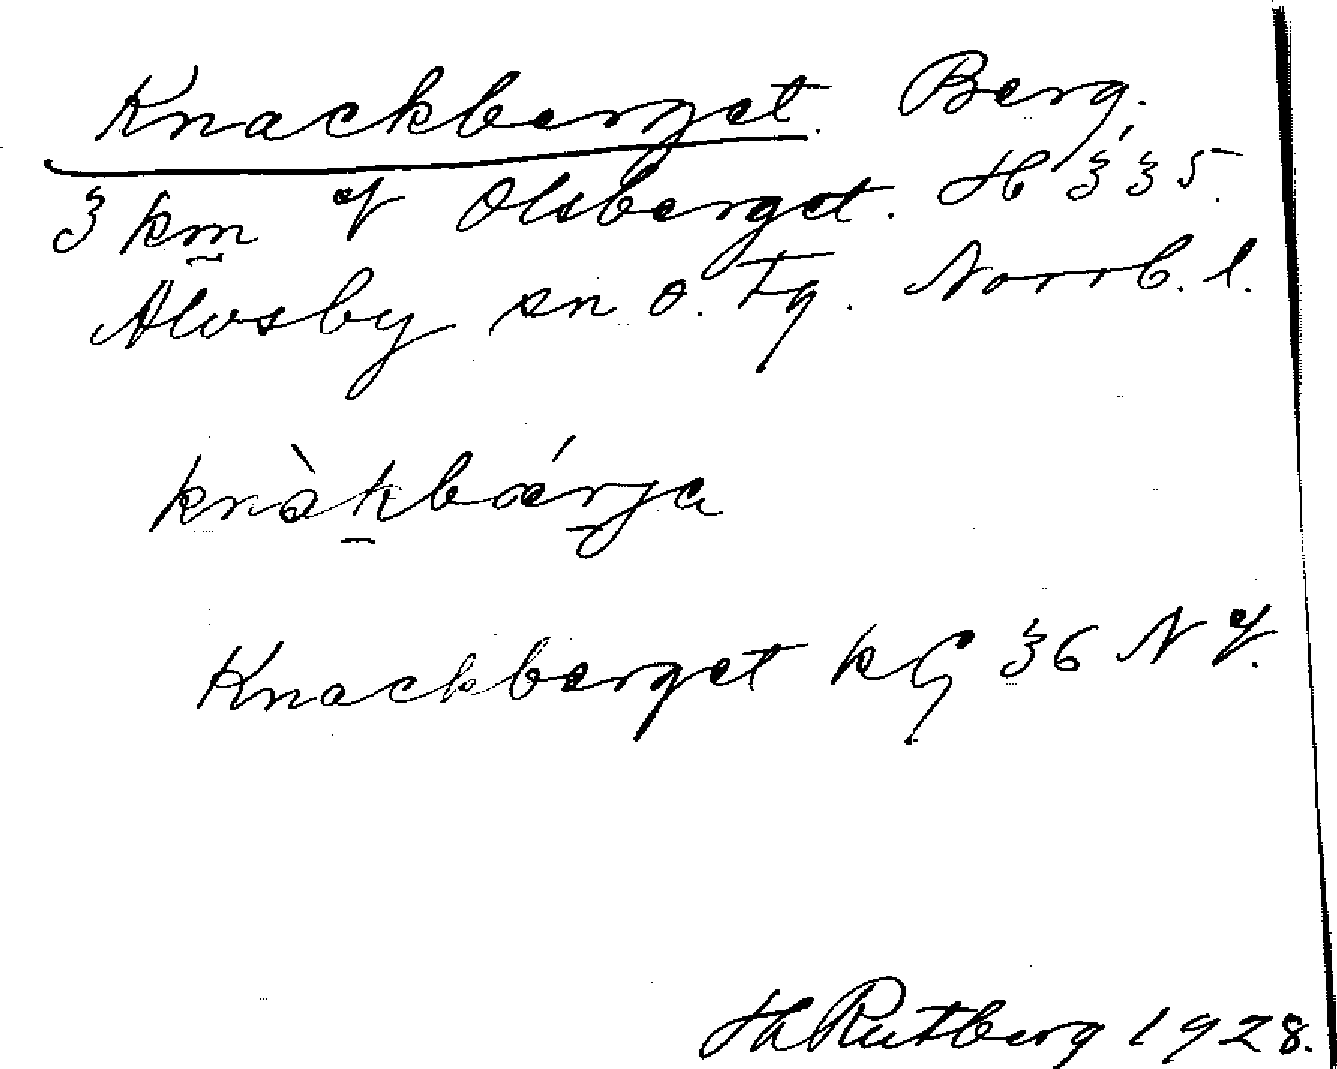 Knackberget. Berg.
3 km V Olsberget. H 335.
Älvsby sn o. Tg. Norrb. l.
knàkbárja
Knackberget kG 36 N V.
Rutberg 1928.